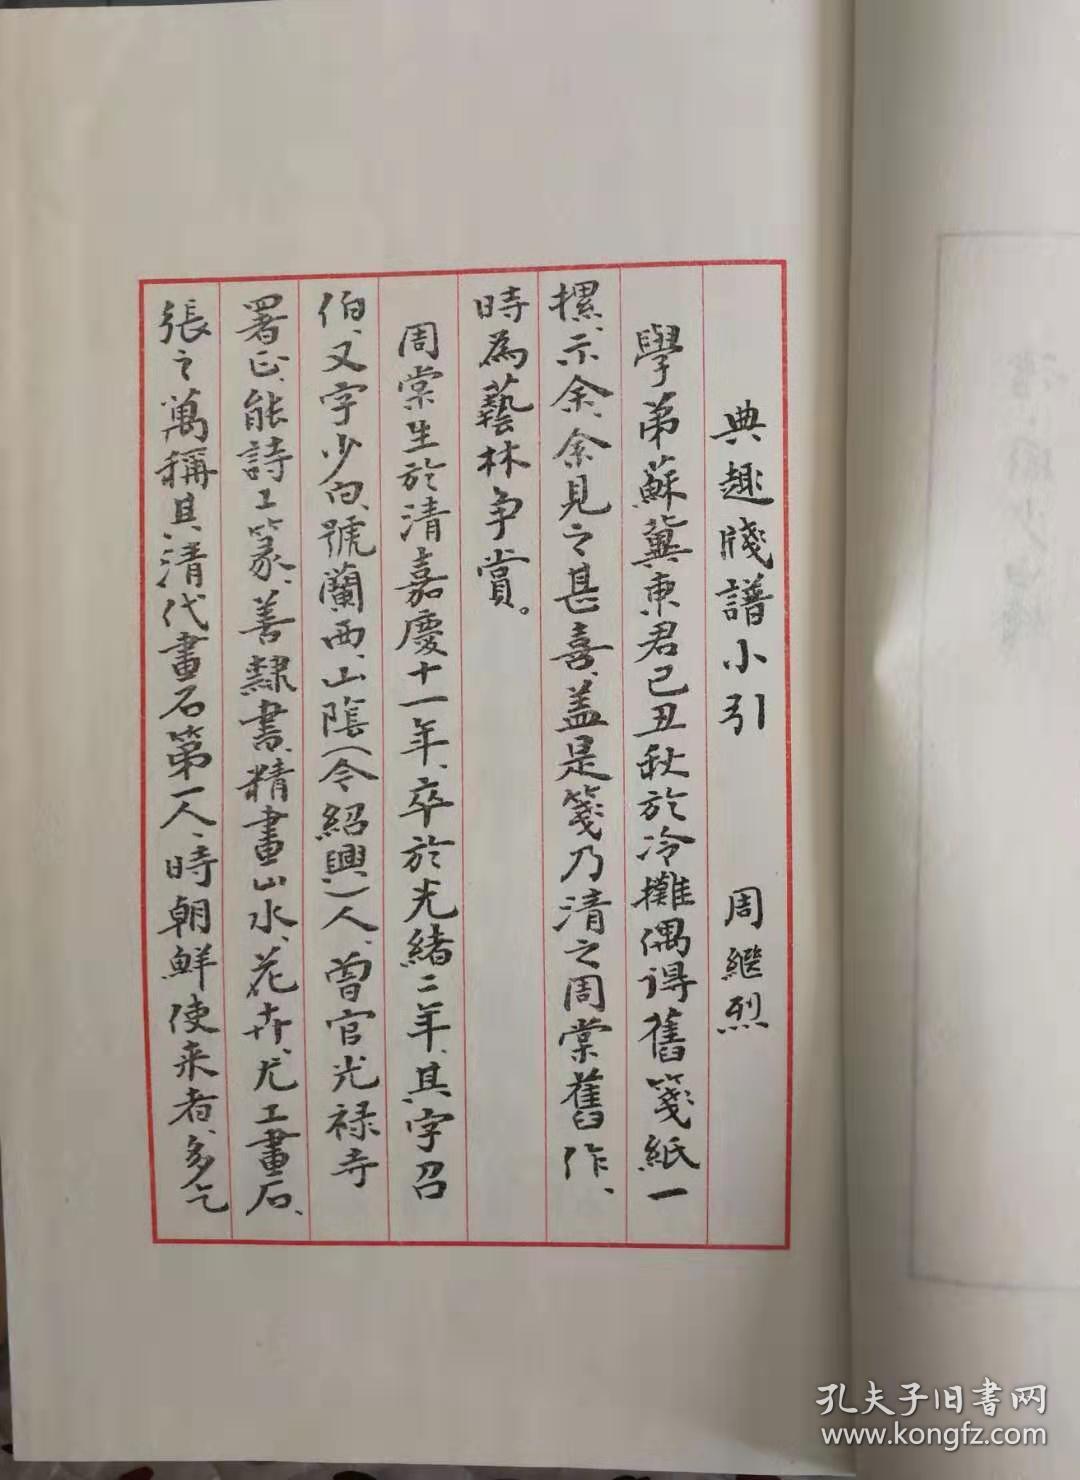 典趣牋譜小引 周繼烈
學弟蘇冀東君已丑秋於冷攤偶得舊箋紙一
摞、示余、余見之甚喜、盖是箋乃清之周棠舊作、
時為藝林争賞。
周棠生於清嘉慶十一年、卒於光緒二年、其字召
伯、又字少白、號蘭西、山陰(今紹興)人、曾官光禄寺
署正、能詩工篆、善隸書、精畫山水、花卉、尤工畫石、
張之萬稱其清代畫石第一人、時朝鮮使来者、多乞
孔夫子旧书网
www.kongfz.com